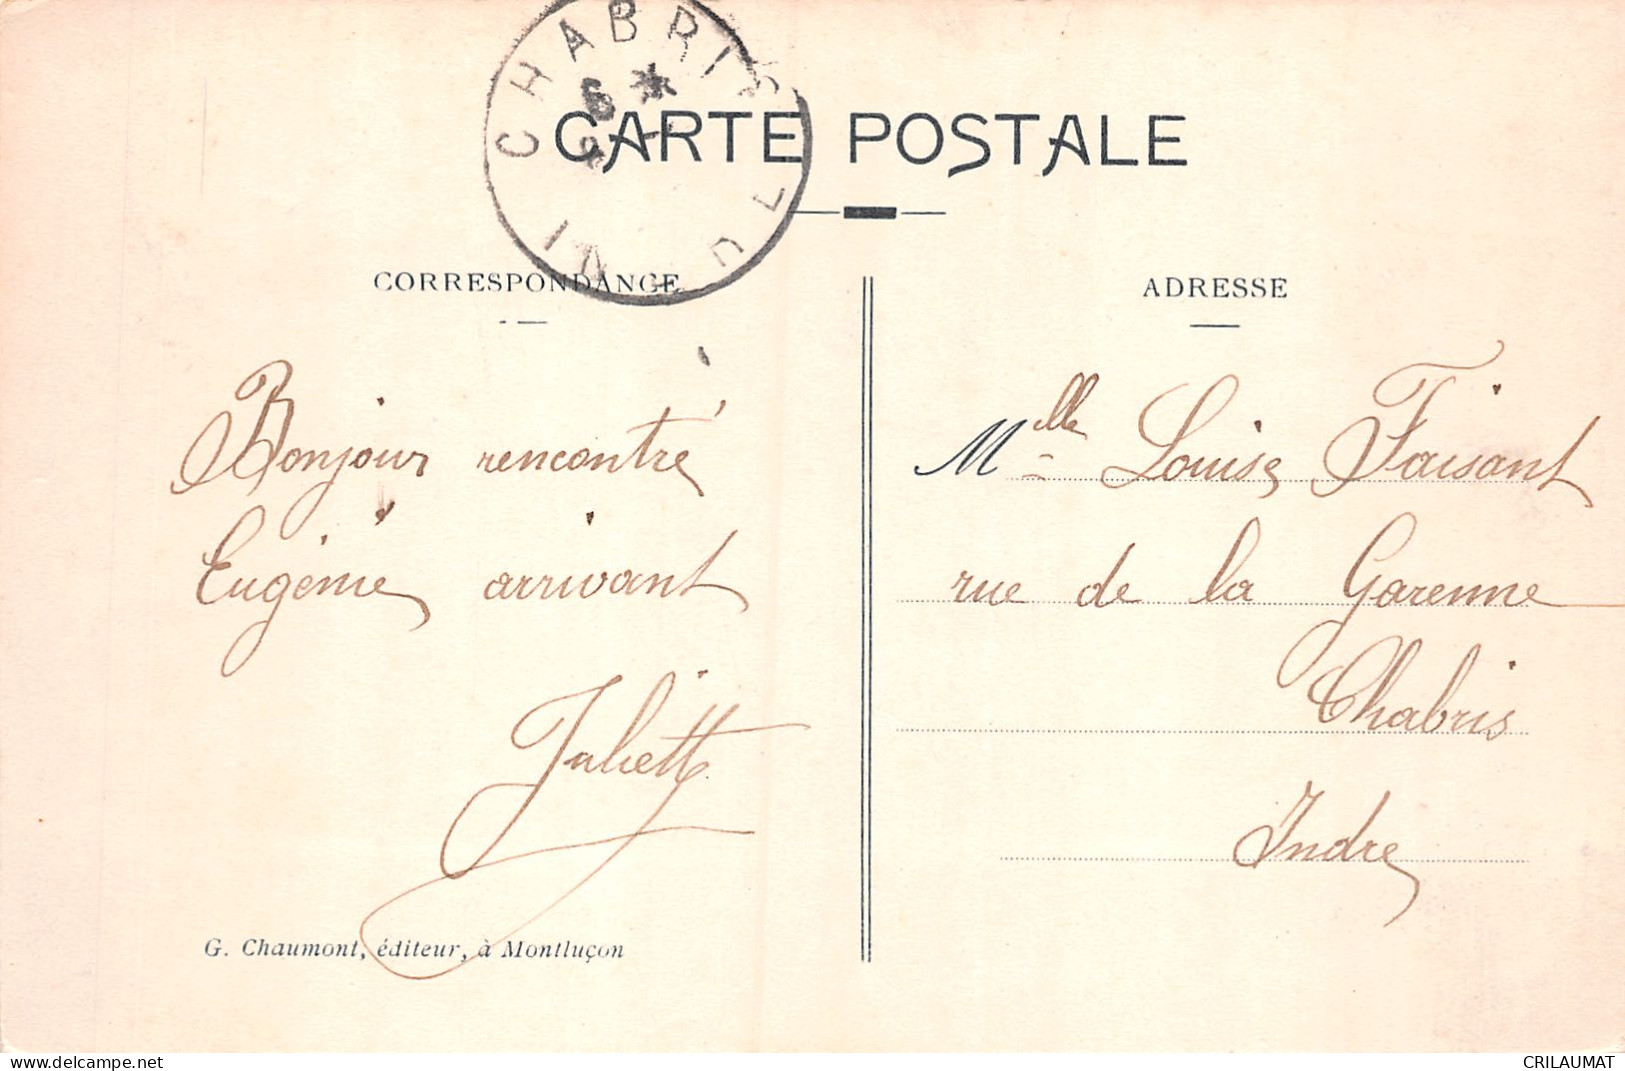 CHABRIS
CARTE POSTALE
CORRESPONDANCE
ADRESSE
Bonjour rencontré
Eugénie arrivant
Juliette
Mlle Louise Faisant
rue de la Garenne
Chabris
Indre
G. Chaumont, éditeur, à Montluçon
www.delcampe.net
CRILAUMAT